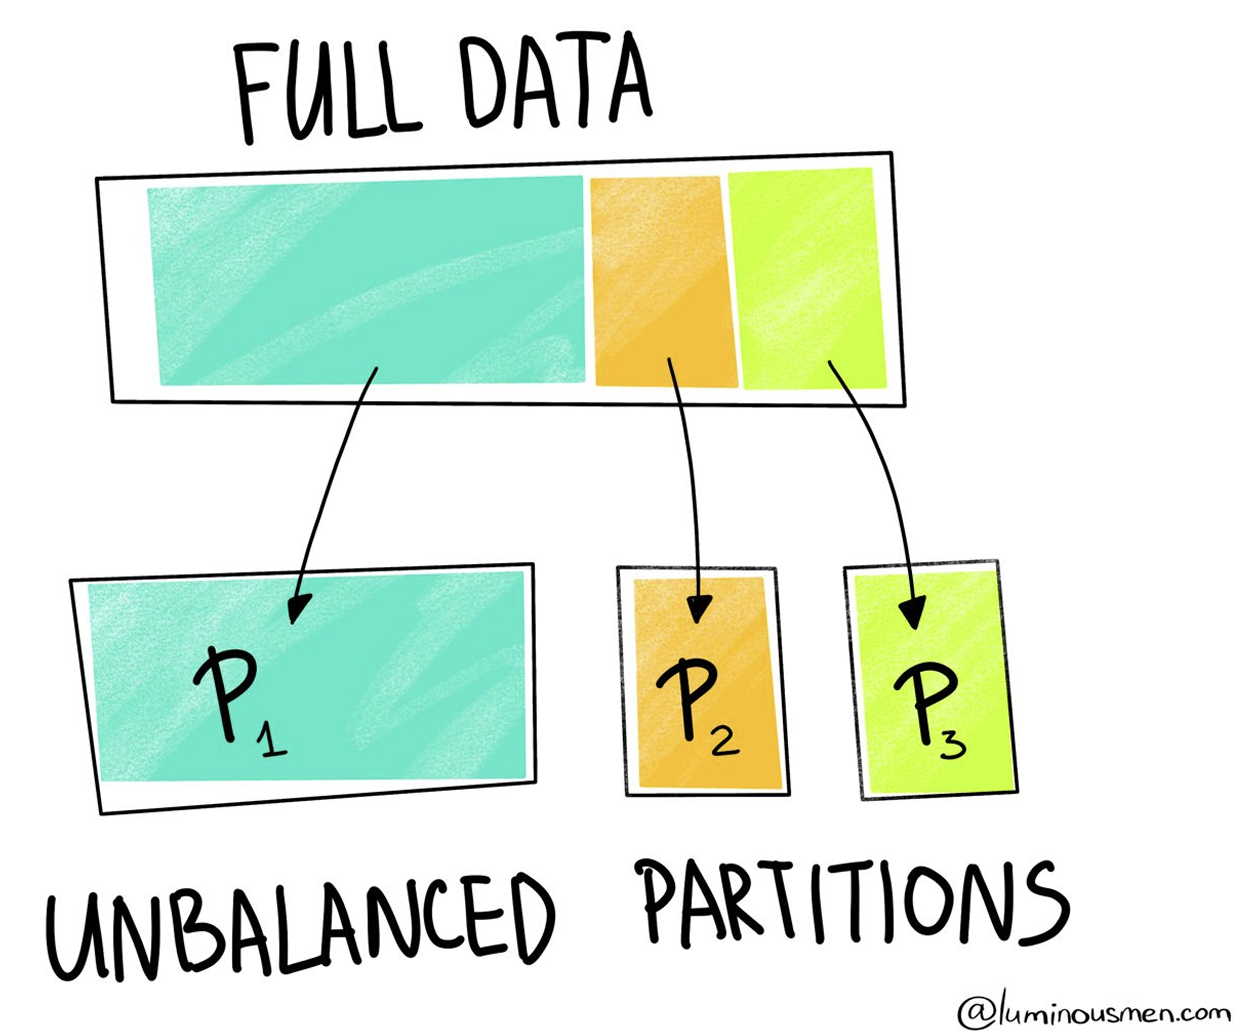 FULL DATA
P1
P2
P3
UNBALANCED PARTITIONS
@luminousmen.com